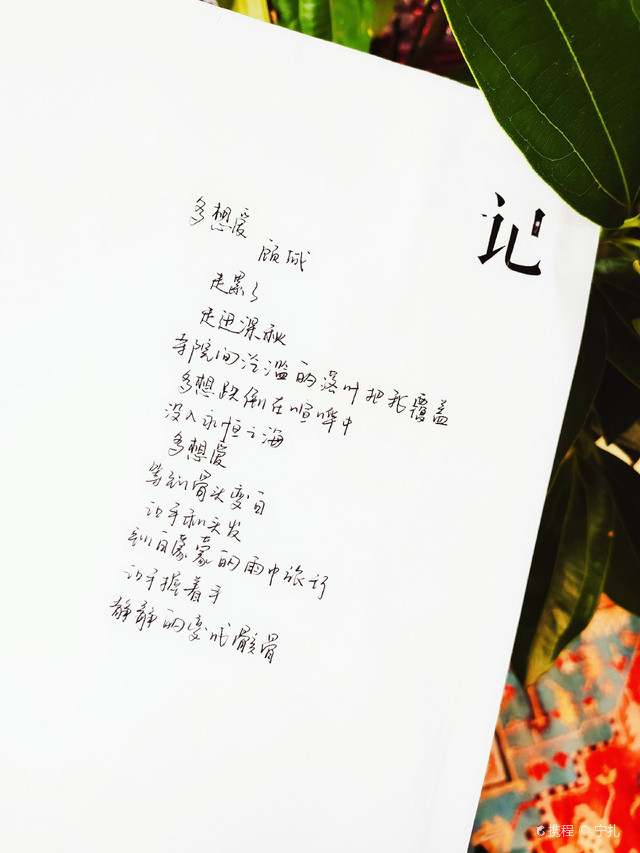 多想爱
顾城
走累了
走进深秋
寺院间泛滥的落叶把我覆盖
多想跌倒在喧哗中
没入永恒之海
多想爱
等到骨头变白
让手和头发
到白蒙蒙的雨中旅行
让手握着手
静静的变成骸骨
记
携程 © 宁扎